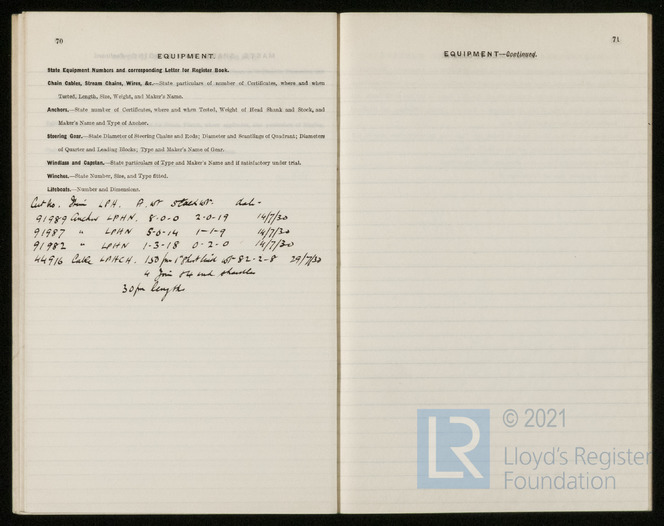 70
EQUIPMENT.
State Equipment Numbers and corresponding Letter for Register Book.
Chain Cables, Stream Chains, Wires, &c.—State particulars of number of Certificates, where and when
Tested, Length, Size, Weight, and Maker's Name.
Anchors.—State number of Certificates, where and when Tested, Weight of Head Shank and Stock, and
Maker's Name and Type of Anchor.
Steering Gear.—State Diameter of Steering Chains and Rods; Diameter and Scantlings of Quadrant; Diameters
of Quarter and Leading Blocks; Type and Maker's Name of Gear.
Windlass and Capstan.—State particulars of Type and Maker's Name and if satisfactory under trial.
Winches.—State Number, Size, and Type fitted.
Lifeboats.—Number and Dimensions.
Cert No. Item LPH. P. wt Stock wt. date
91989 Anchor LPHN. 8-0-0 2-0-19 14/7/30
91987 " LPHN 5-0-14 1-1-9 14/7/30
91982 " LPHN 1-3-18 0-2-0 14/7/30
44916 Cable LPHCH. 150 fm 1" wt 82-2-8 29/7/30
4 Join end shackles
30 fm lengths
71
EQUIPMENT—Continued.
LR
© 2021
Lloyd's Register
Foundation